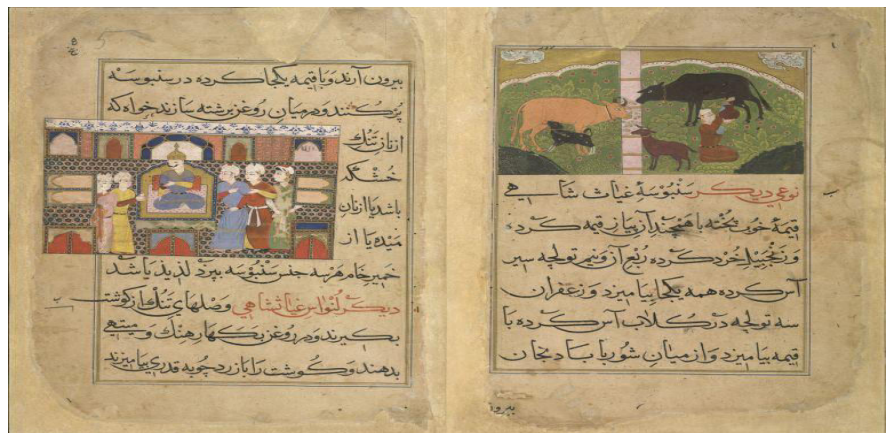 نوعی دیکر سنبوسهٔ غیاث شاهی
قیمهٔ خوب پخته با همچند آن پیاز قیمه کرده
و زنجبیل خرد کرده ربع آن و نیم تولچه سیر
آس کرده همه یکجا بیامیزد و زعفران
سه تولچه در کلاب آس کرده با
قیمه بیامیزد و از میان شوربا بادنجان
بیرون
بیرون آرند و با قیمه یکجا کرده در سنبوسه
پر کنند و در میان روغن برشته سازند خواه که
از نان تنک
خشکه
باشد یا از نان
میده یا از
خمیر خام هر سه جنس سنبوسه بپزد لذیذ باشد
دیکر غیاثشاهی وصلهای تنک از کوشت
بکیرند و در روغن هنک و میتهی
بدهند و کوشت را با زردچوبه قدری بیامیزند